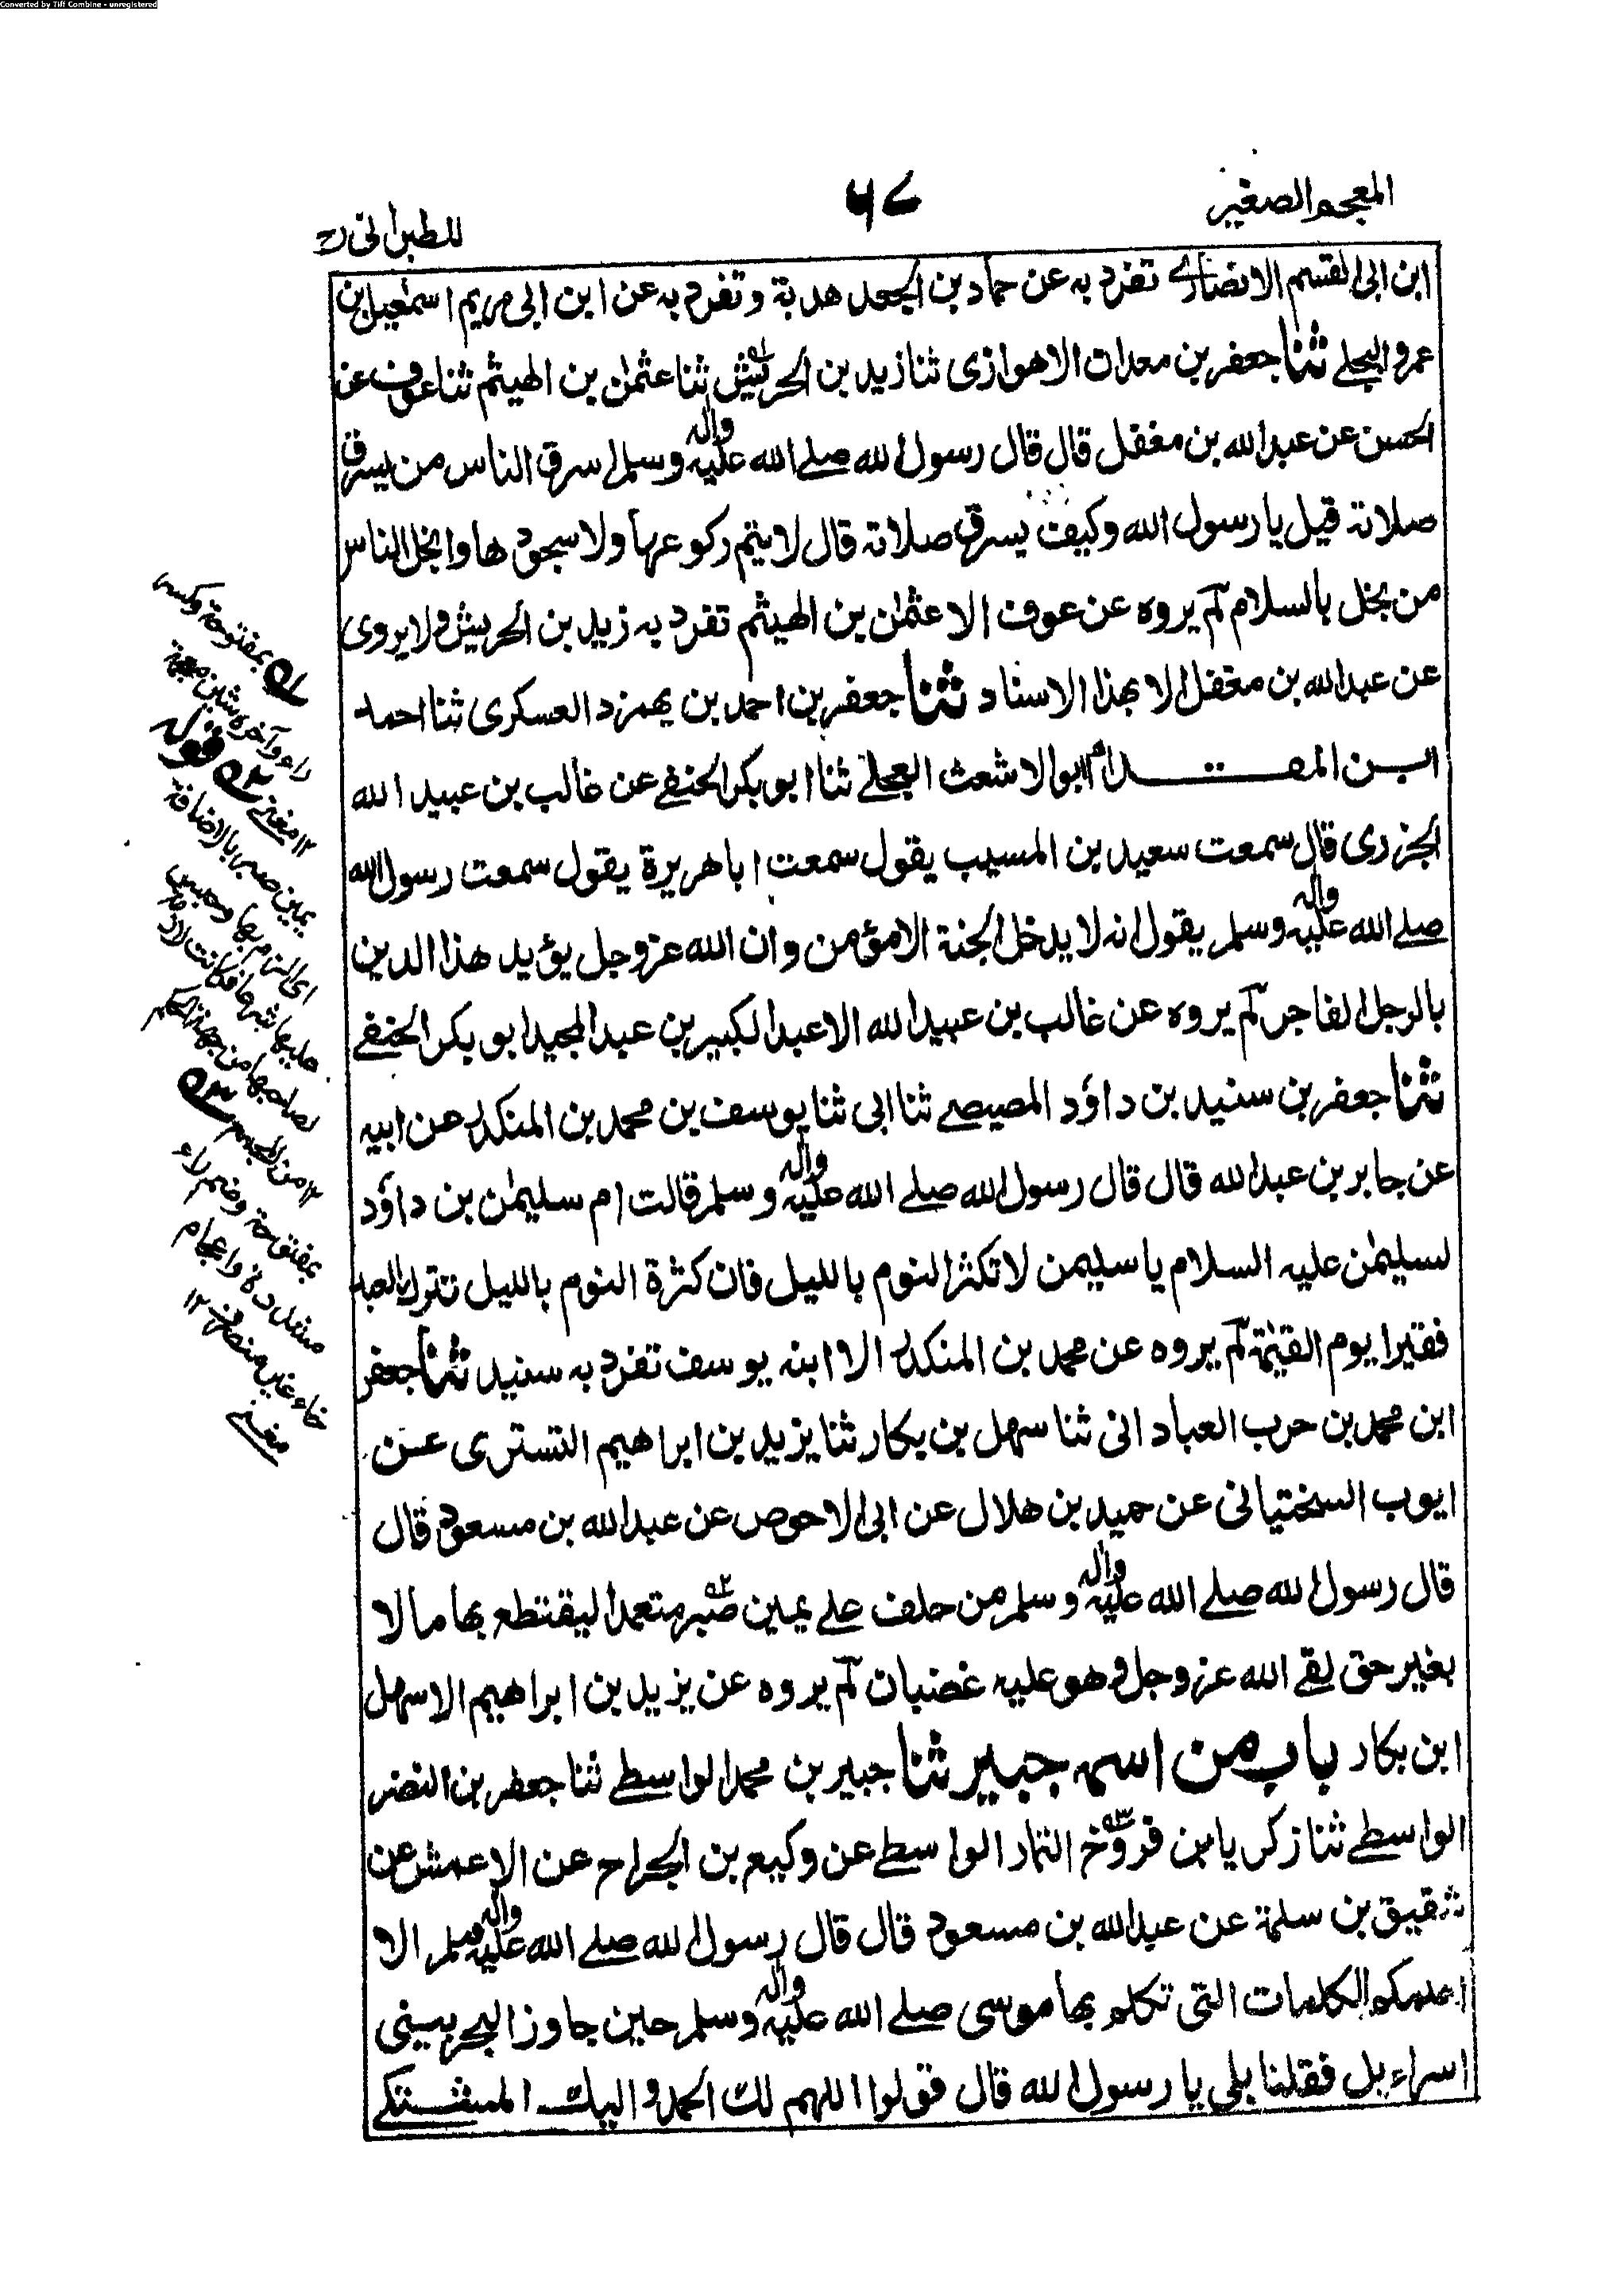 Converted by Tiff Combine - unregistered
المعجم الصغير
٦٧
للطبراني
ابن ابى القسم الانصاري تفرد به عن حماد بن الجعد هدبة وتفرد به عن ابن ابى مريم اسمعيل بن
عمرو البجلے ثنا جعفر بن معدان الاهوازى ثنا زيد بن الحريش ثنا عثمٰن بن الهيثم ثنا عوف عن
الحسن عن عبد الله بن مغفل قال قال رسول الله صلے الله عليه واله وسلم اسرق الناس من يسرق
صلاته قيل يا رسول الله وكيف يسرق صلاته قال لا يتم ركوعها ولا سجودها وابخل الناس
من بخل بالسلام لم يروه عن عوف الا عثمٰن بن الهيثم تفرد به زيد بن الحريش ولا يروى
عن عبد الله بن مغفل الا بهذا الاسناد ثنا جعفر بن احمد بن بهمرد العسكرى ثنا احمد
ابن المقدام ابو الاشعث العجلے ثنا ابو بكر الحنفے عن غالب بن عبيد الله
الجزرى قال سمعت سعيد بن المسيب يقول سمعت ابا هريرة يقول سمعت رسول الله
صلے الله عليه واله وسلم يقول انه لا يدخل الجنة الا مؤمن وان الله عز وجل يؤيد هذا الدين
بالرجل الفاجر لم يروه عن غالب بن عبيد الله الا عبد الكبير بن عبد المجيد ابو بكر الحنفے
ثنا جعفر بن سنيد بن داؤد المصيصے ثنا ابى ثنا يوسف بن محمد بن المنكدر عن ابيه
عن جابر بن عبد الله قال قال رسول الله صلے الله عليه واله وسلم قالت ام سليمٰن بن داؤد
لسليمٰن عليه السلام يا سليمن لا تكثر النوم بالليل فان كثرة النوم بالليل تترك العبد
فقيرا يوم القيٰمة لم يروه عن محمد بن المنكدر الا ابنه يوسف تفرد به سنيد ثنا جعفر
ابن محمد بن حرب العبادانى ثنا سهل بن بكار ثنا يزيد بن ابراهيم التسترى عن
ايوب السختيانى عن حميد بن هلال عن ابى الاحوص عن عبد الله بن مسعود قال
قال رسول الله صلے الله عليه واله وسلم من حلف علے يمين صبر متعمدا ليقتطع بها مالا
بغير حق لقے الله عز وجل وهو عليه غضبان لم يروه عن يزيد بن ابراهيم الا سهل
ابن بكار باب من اسمه جبير ثنا جبير بن محمد الواسطے ثنا جعفر بن النضر
الواسطے ثنا زكريا بن فروخ التمار الواسطے عن وكيع بن الجراح عن الاعمش عن
شقيق بن سلمة عن عبد الله بن مسعود قال قال رسول الله صلے الله عليه واله وسلم الا
اعلمكم الكلمات التى تكلم بها موسى صلے الله عليه واله وسلم حين جاوز البحر ببنى
اسراءيل فقلنا بلى يا رسول الله قال قولوا اللهم لك الحمد واليك المشتكے
له بمفتوحة وكسر
راء وآخره شين معجمة
١٢ مغنے ٢ه قوله
يمين صبر بالاضافة
اى الزم بها وحبس
عليها شرعا فكانت لازمة
لصاحبها من جهة الحكم
١٢ من المجمع ٣ه
بمفتوحة وضم راء
مشددة واعجام
خاء غير منصرف ١٢
مغنے